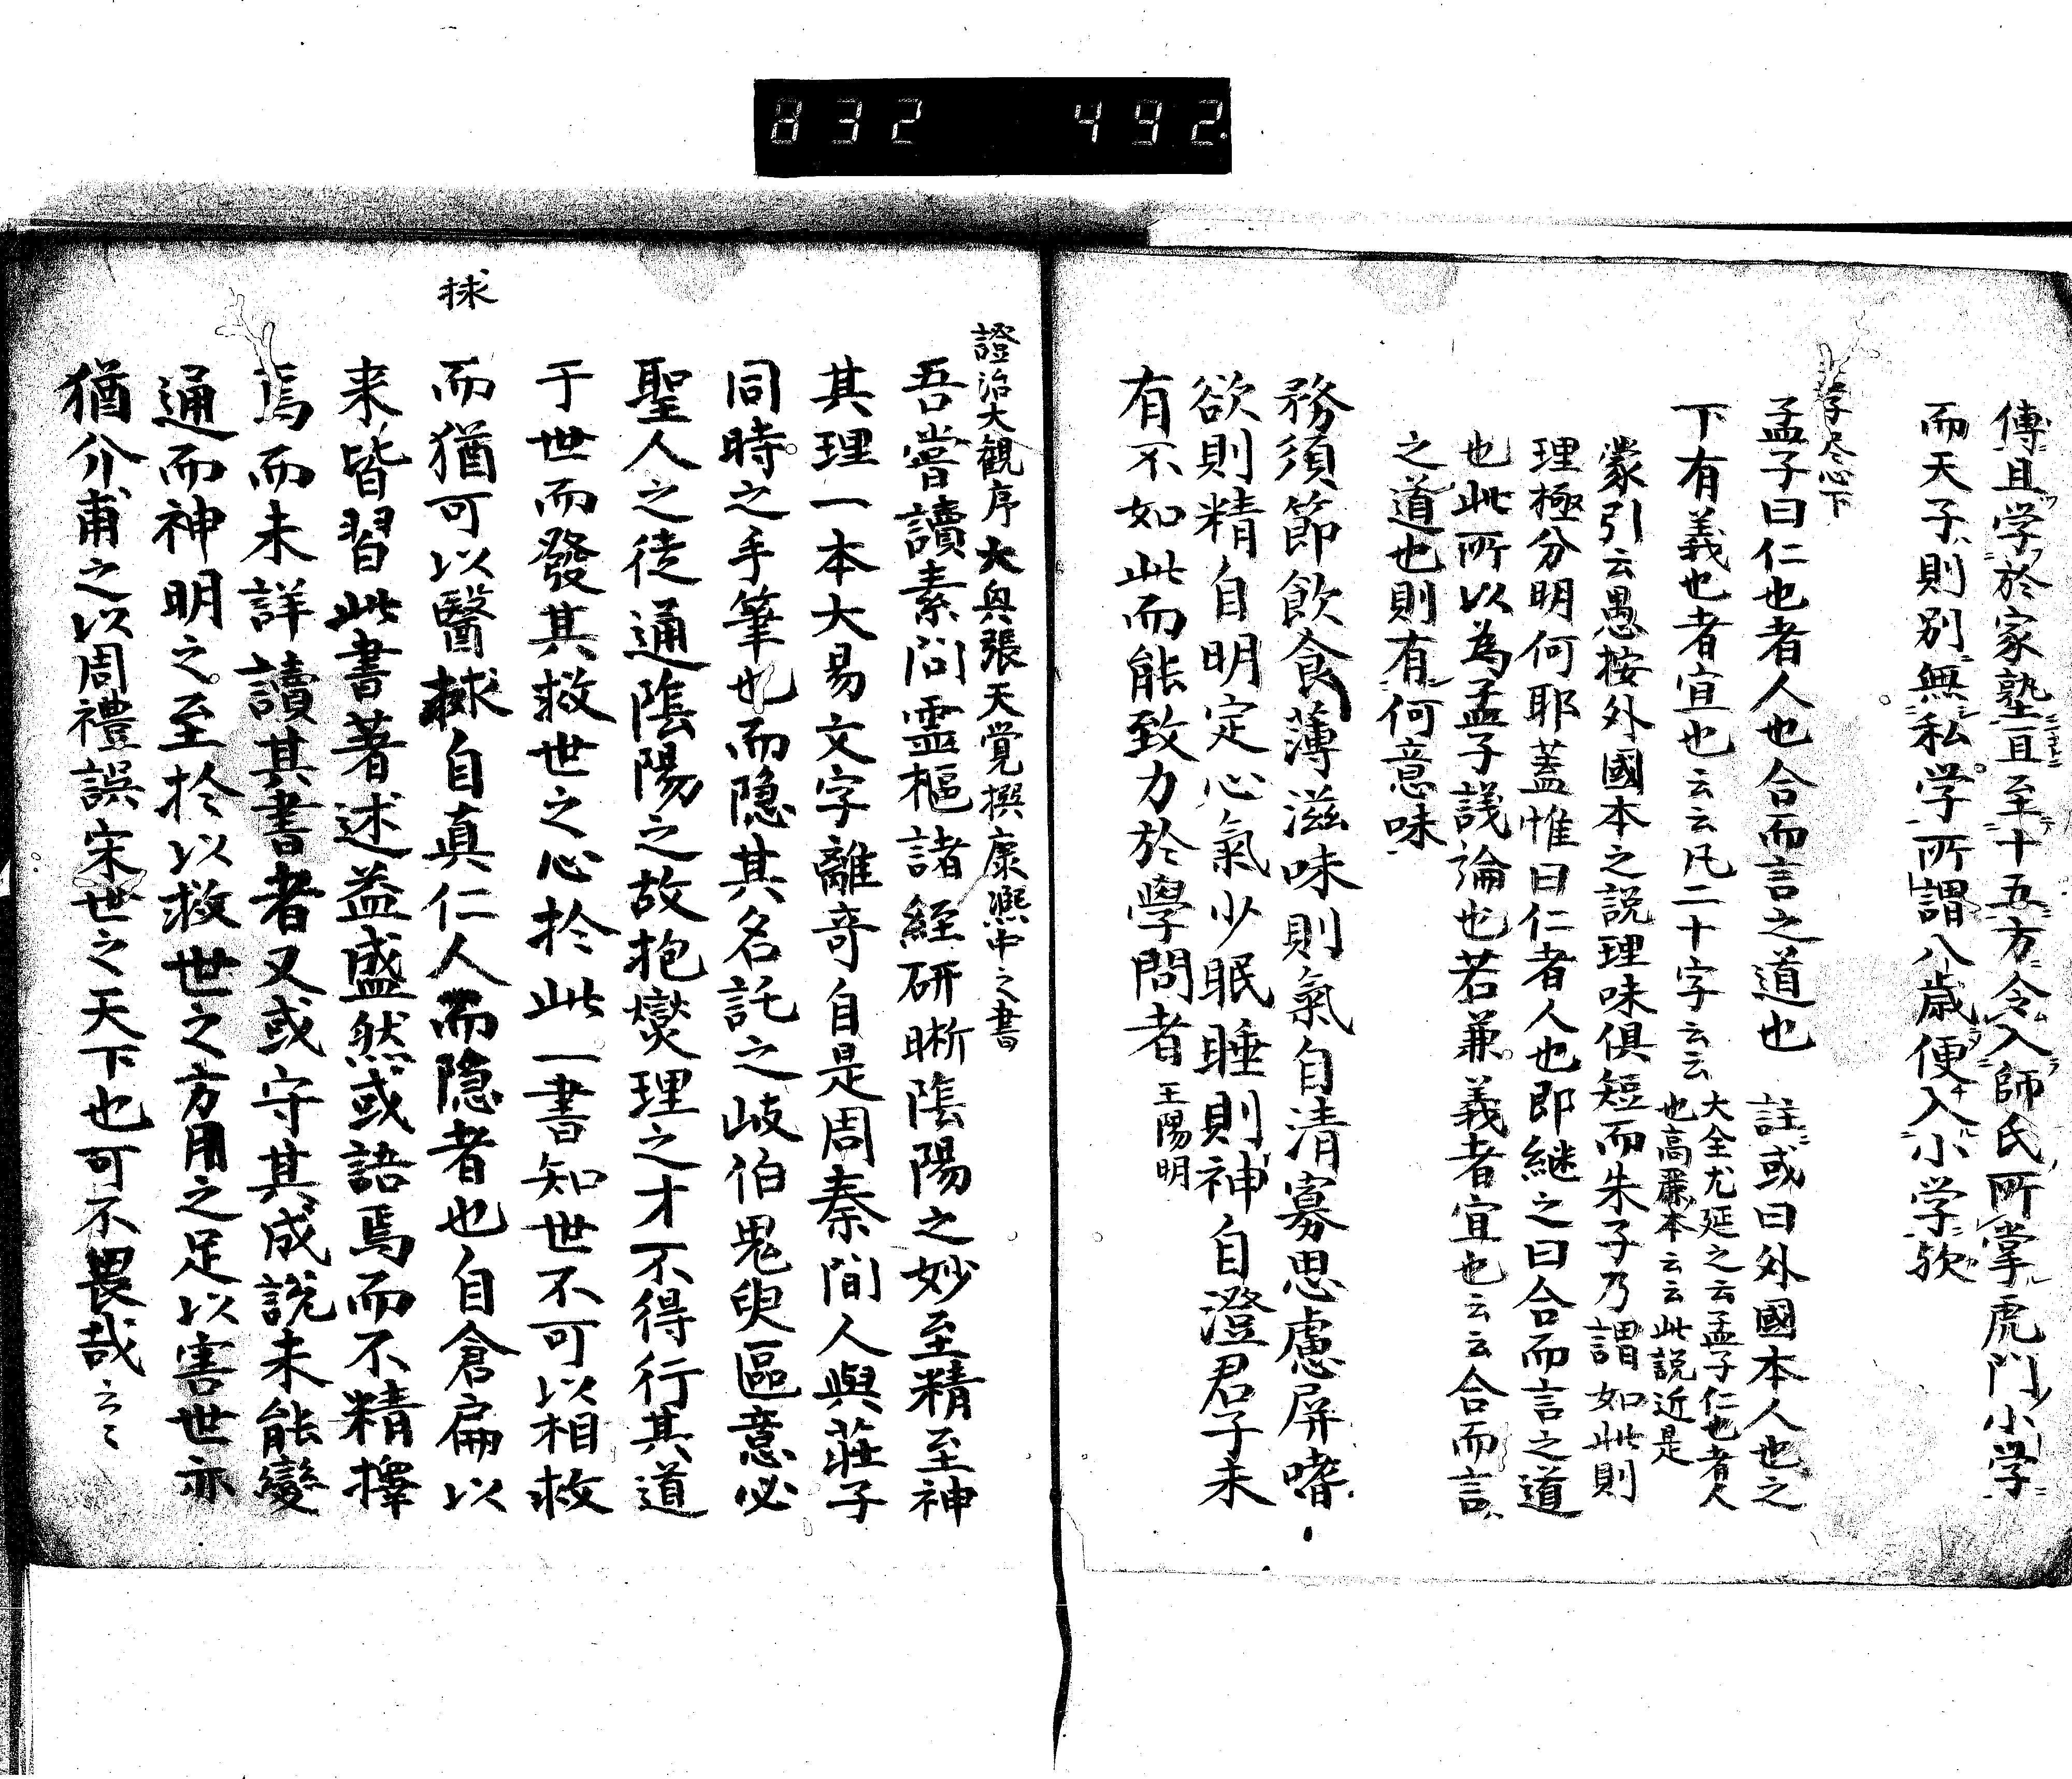 832 492
傳且学於家塾直至十五方令入師氏所掌虎門小学
而天子則別無私学所謂八歳便入小学欤
孟子尽心下
孟子曰仁也者人也合而言之道也 註或曰外國本人也之
下有義也者宜也云云凡二十字云云 大全尤延之云孟子仁也者人
也高麗本云云此説近是
蒙引云愚按外國本之説理味俱短而朱子乃謂如此則
理極分明何耶蓋惟曰仁者人也即継之曰合而言之道
也此所以為孟子議論也若兼義者宜也云云合而言
之道也則有何意味
務須節飲食薄滋味則氣自清寡思慮屏嗜
欲則精自明定心氣少眠睡則神自澄君子未
有不如此而能致力於學問者 王陽明
證治大觀序 大興張天覚撰康熈中之書
吾嘗讀素問靈樞諸経研晰陰陽之妙至精至神
其理一本大易文字離奇自是周秦間人與莊子
同時之手筆也而隐其名託之岐伯鬼臾區意必
聖人之徒通陰陽之故抱燮理之才不得行其道
于世而發其救世之心於此一書知世不可以相救
而猶可以醫捄自真仁人而隐者也自倉扁以
捄
来皆習此書著述益盛然或語焉而不精擇
焉而未詳讀其書者又或守其成説未能變
通而神明之至於以救世之方用之足以害世亦
猶介甫之以周禮誤宋世之天下也可不畏哉云々